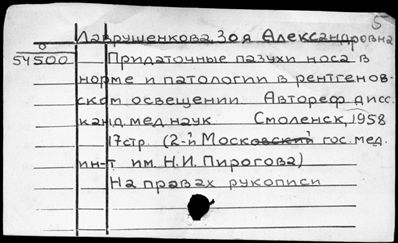 5
Лаврушенкова, Зоя Александровна
54500 Придаточные пазухи носа в
норме и патологии в рентгенов-
ском освещении. Автореф дисс.
канд. мед. наук. Смоленск, 1958
17стр. (2-й Московский гос. мед.
ин-т им. Н.И. Пирогова)
На правах рукописи